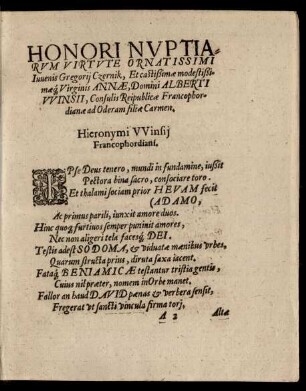 HONORI NVPTIA-
RVM VIRTVTE ORNATISSIMI
Iuvenis Gregorij Czernik, Et castissimæ modestissi-
mæq́; Virginis ANNÆ, Domini ALBERTI
VVINSII, Consulis Reipublicæ Francophor-
dianæ ad Oderam filiæ Carmen,
Hieronymi VVinsij
Francophordiani.
IPse Deus tenero, mundi in fundamine, iussit
Pectora bina sacro, consociare toro.
Et thalami sociam prior HEVAM fecit
(ADAMO,
Ac primus parili, iunxit amore duos.
Hinc quoq́; furtivos semper punimit amores,
Nec non aligeri tela facesq́; DEI.
Testis adest SODOMA, & viduatæ mænibus vrbes,
Quarum structa prius, diruta saxa iacent.
Fataq́; BENIAMICÆ testantur tristia gentis,
Cuius nil præter, nomem in Orbe manet.
Fallor an haud DAVID pænas & verbera sensit,
Fregerat vt sancti vincula firma torj,
A 2
Altæ